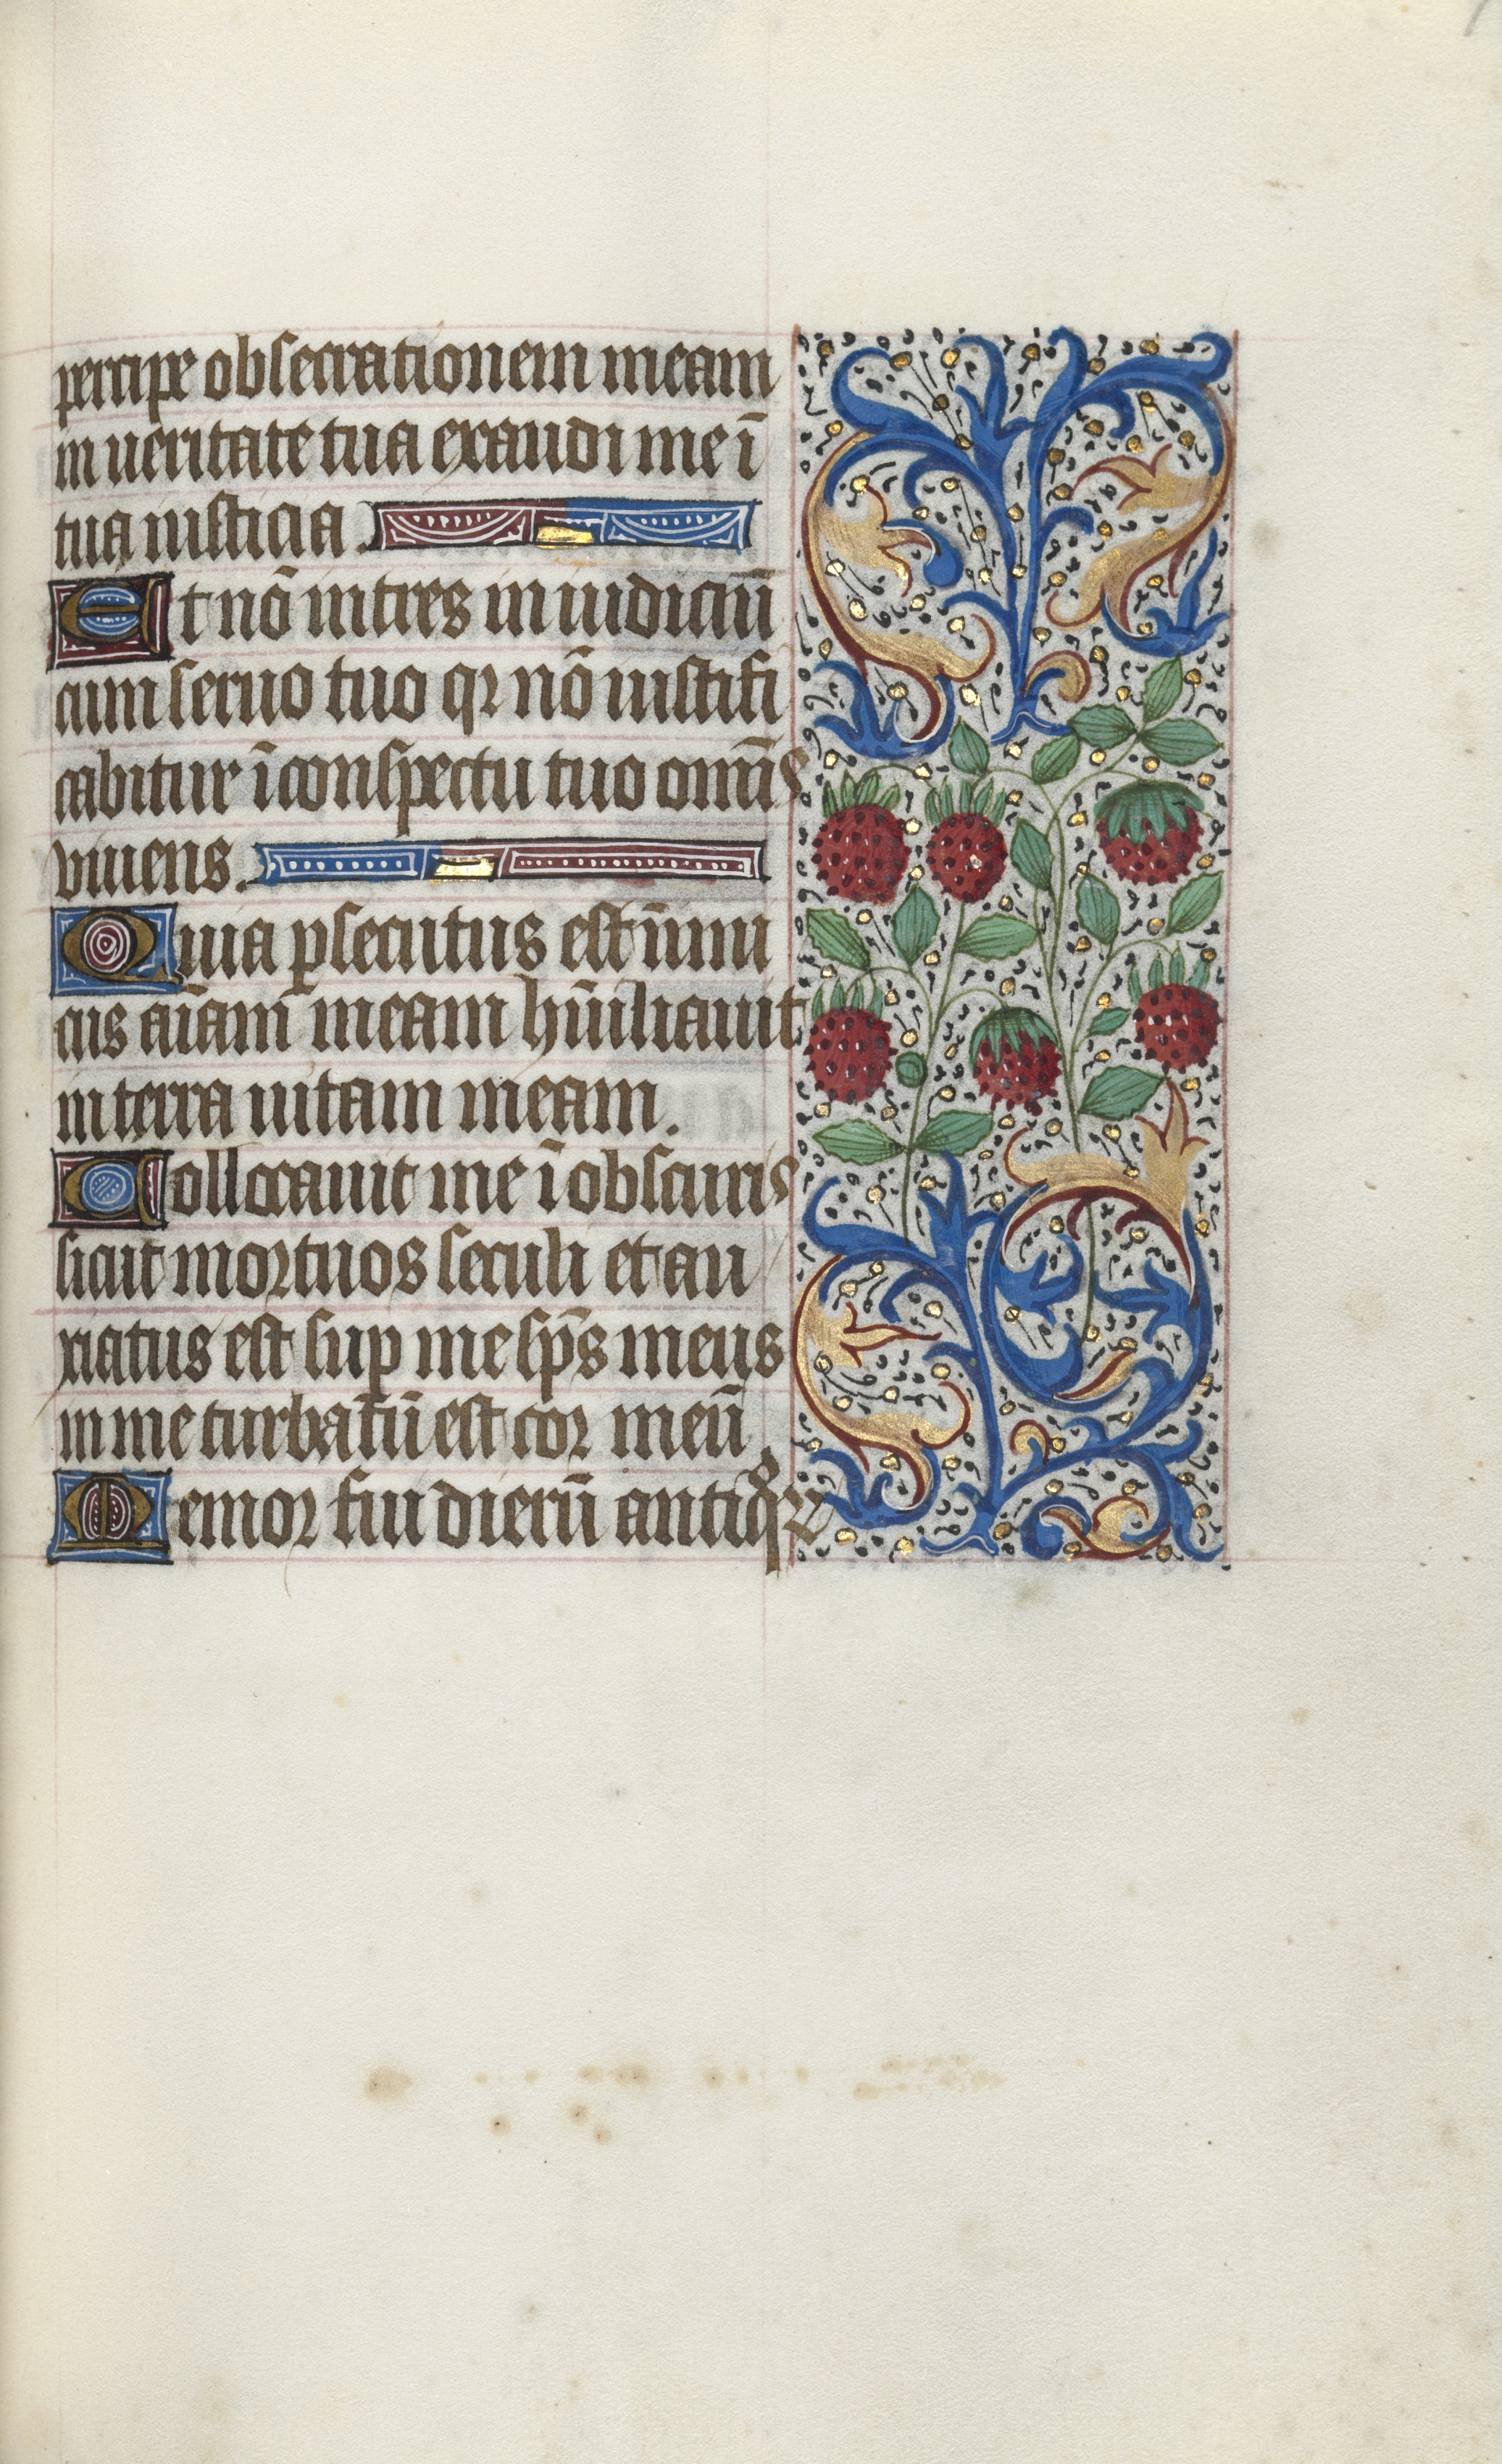 percipe obsecrationem meam
in ueritate tua exaudi me ī
tua iusticia.
Et nō intres in iudiciū
cum seruo tuo qꝛ nō iustifi
cabitur ī conspectu tuo om̄is
viuens.
Quia ꝑsecutus est inimi
cus aīam meam hūiliauit
in terra uitam meam.
Collocauit me ī obscuris
sicut mortuos seculi et an
xiatus est sup me sp̄s meus
in me turbatū est cor meū.
Memor fui dierū antiqͦꝝ